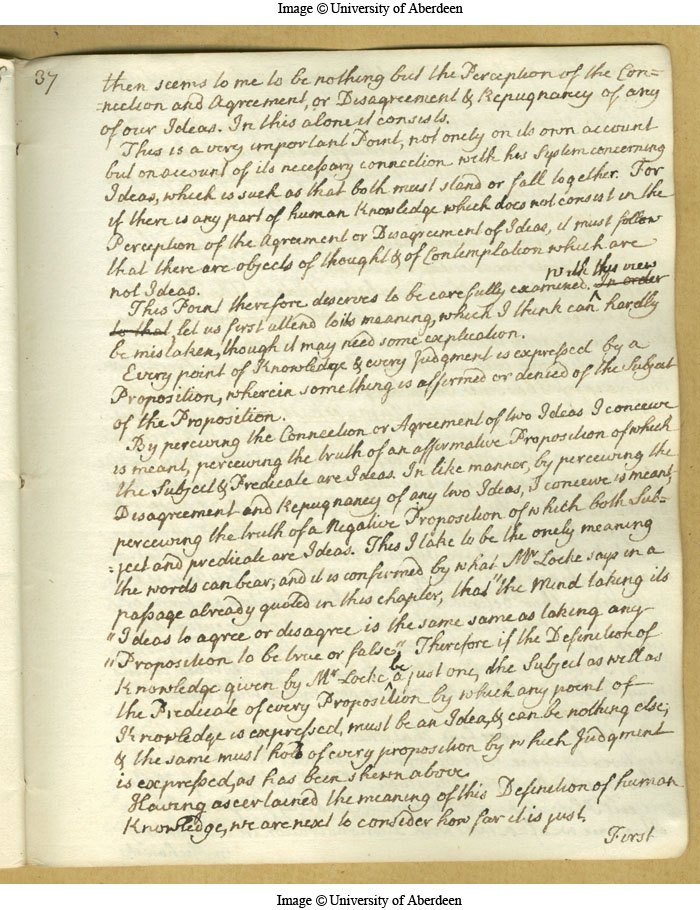 Image © University of Aberdeen
37
then seems to me to be nothing but the Perception of the Con=
=nection and Agreement, or Disagreement & Repugnancy of any
of our Ideas. In this alone it consists.
This is a very important Point, not onely on its own account
but on account of its necessary connection with his System concerning
Ideas, which is such as that both must stand or fall together. For
if there is any part of human Knowledge which does not consist in the
Perception of the Agreement or Disagreement of Ideas, it must follow
that there are objects of thought & of Contemplation which are
not Ideas.
With this view
This Point therefore deserves to be carefully examined. In order
to that let us first attend to its meaning, which I think can ^ hardly
be mistaken, though it may need some explication.
Every point of Knowledge & every Judgment is expressed by a
Proposition, wherein something is affirmed or denied of the Subject
of the Proposition.
By perceiving the Connection or Agreement of two Ideas I conceive
is meant, perceiving the truth of an affirmative Proposition of which
the Subject & Predicate are Ideas. In like manner, by perceiving the
Disagreement and Repugnancy of any two Ideas, I conceive is meant,
perceiving the truth of a Negative Proposition of which both Sub=
=ject and predicate are Ideas. This I take to be the onely meaning
the words can bear, and it is confirmed by what Mr Locke says in a
passage already quoted in this chapter, that "the Mind taking its
"Ideas to agree or disagree is the same same as taking any
"Proposition to be true or false," Therefore if the Definition of
be
Knowledge given by Mr Locke ^ a just one, the Subject as well as
the Predicate of every Proposition by which any point of
Knowledge is expressed, must be an Idea, & can be nothing else;
& the same must hold of every proposition by which Judgment
is expressed, as has been shewn above.
Having ascertained the meaning of this Definition of human
Knowledge, we are next to consider how far it is just.
First
Image © University of Aberdeen